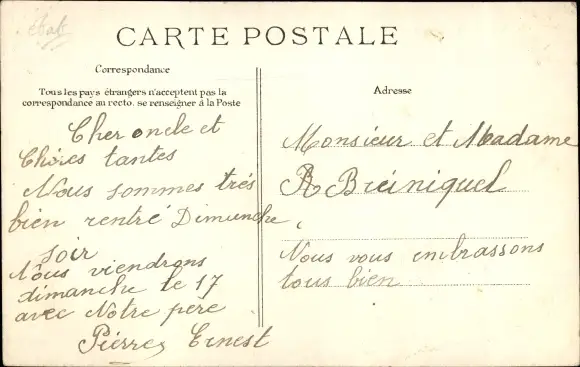 CARTE POSTALE
Correspondance
Tous les pays étrangers n'acceptent pas la
correspondance au recto. se renseigner à la Poste
Cher oncle et
Chéres tantes
Nous sommes trés
bien rentré Dimanche
soir
Nous viendrons
dimanche le 17
avec Notre pere
Piérre Ernest
Adresse
Monsieur et Madame
Nous vous embrassons
tous bien